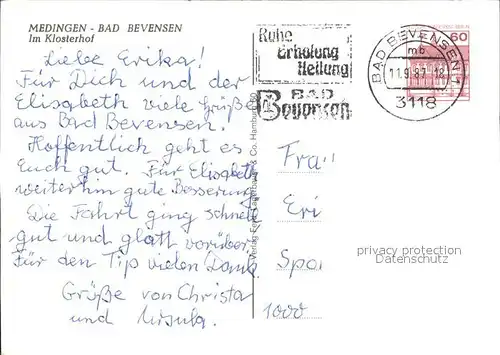 MEDINGEN - BAD BEVENSEN
Im Klosterhof
Liebe Erika!
Für Dich und der
Elisabeth viele Grüße
aus Bad Bevensen.
Hoffentlich geht es
Euch gut. Für Elisabeth
weiterhin gute Besserung
Die Fahrt ging schnell
gut und glatt vorüber.
Für den Tip vielen Dank
Grüße von Christa
und Ursula.
Ruhe
Erholung
Heilung
BAD
Bevensen
BAD BEVENSEN 1
mb
11.9.87-18
3118
60
Frau
Eri
Spa
1000
privacy protection
Datenschutz